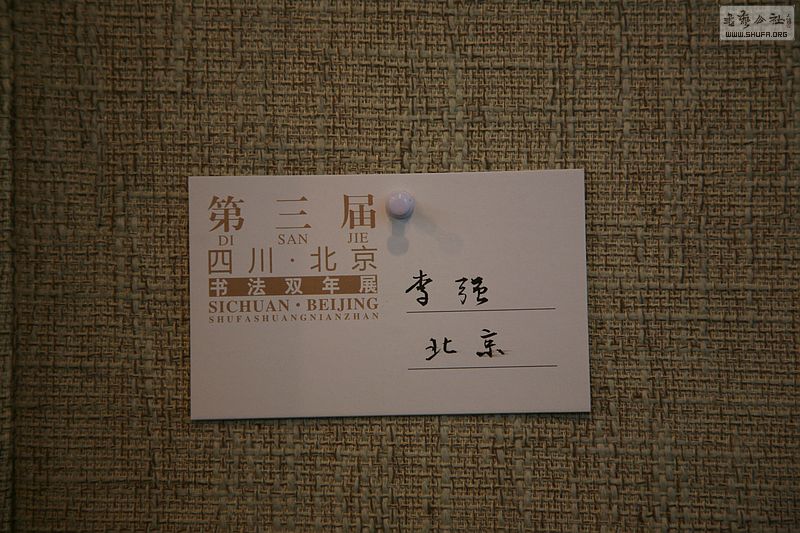 第三届
DI SAN JIE
四川·北京
书法双年展
SICHUAN·BEIJING
SHUFASHUANGNIANZHAN
李强
北京
WWW.SHUFA.ORG